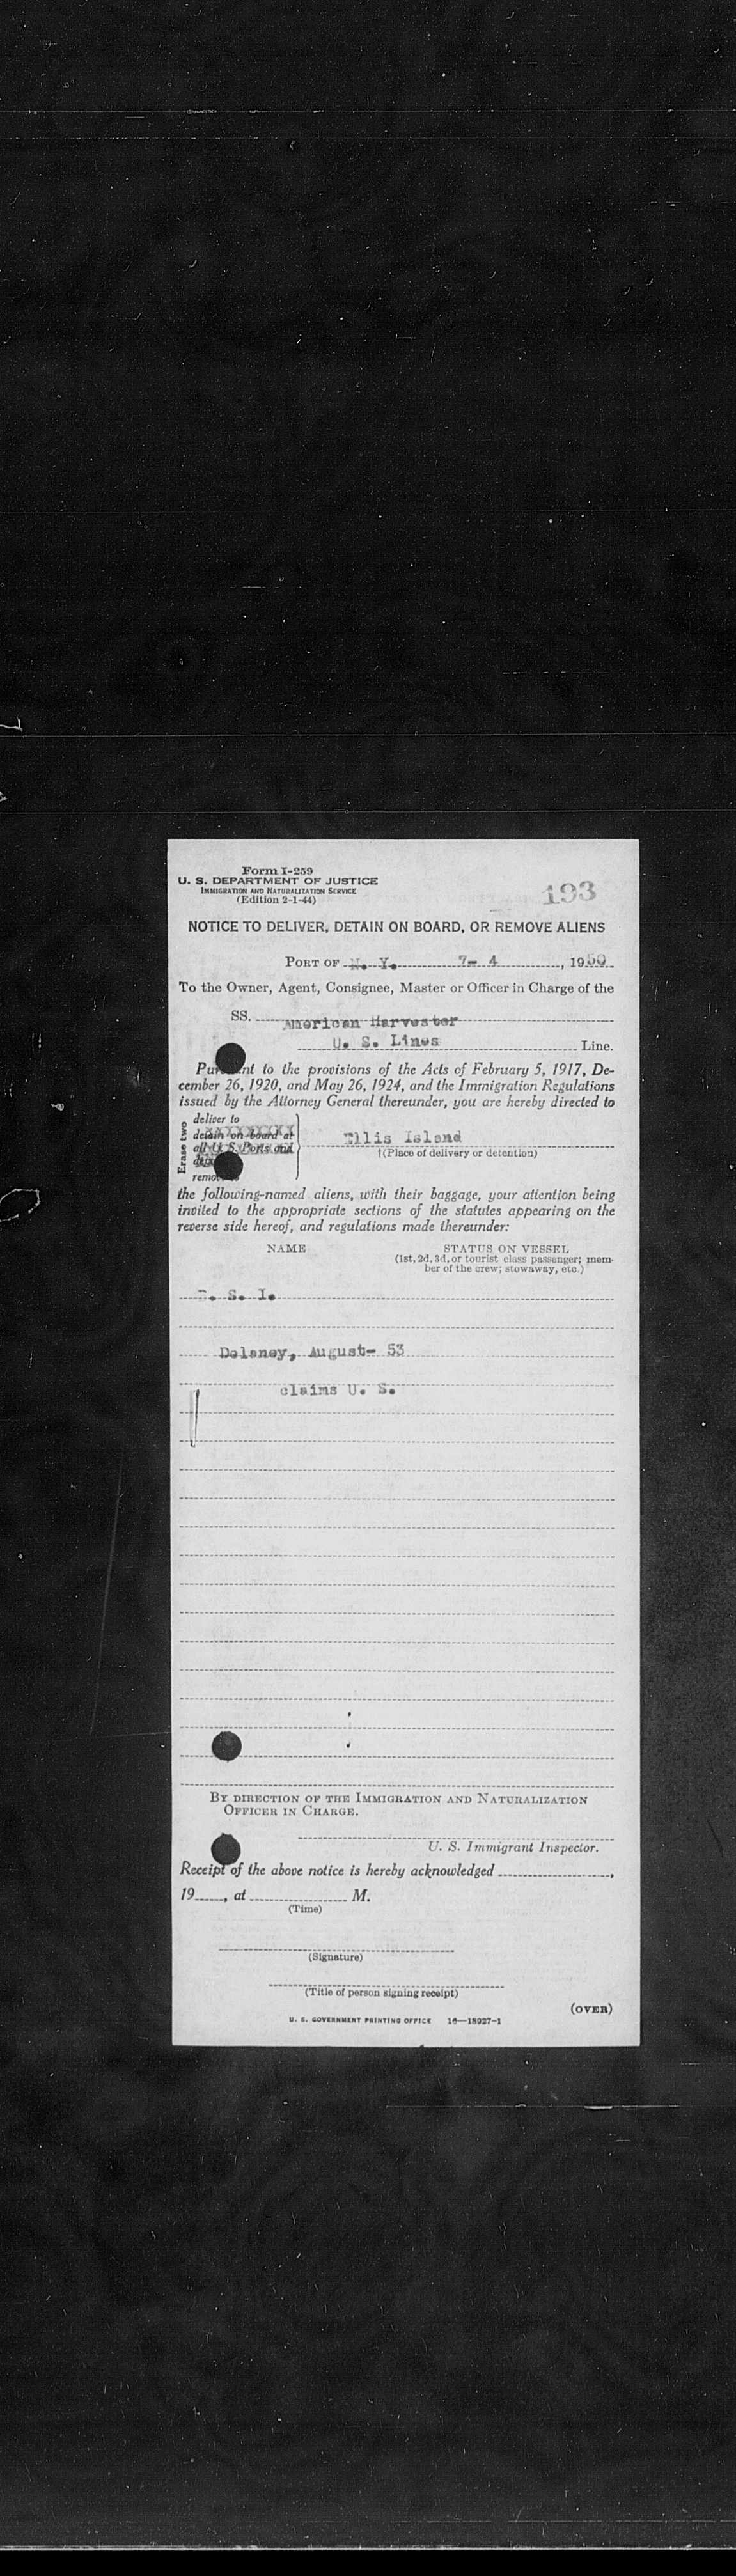 Form I-259
U. S. DEPARTMENT OF JUSTICE
IMMIGRATION AND NATURALIZATION SERVICE
(Edition 2-1-44)
193
NOTICE TO DELIVER, DETAIN ON BOARD, OR REMOVE ALIENS
PORT OF N. Y. 7- 4, 1950
To the Owner, Agent, Consignee, Master or Officer in Charge of the
SS. American Harvester
U. S. Lines Line.
to the provisions of the Acts of February 5, 1917, De-
cember 26, 1920, and May 26, 1924, and the Immigration Regulations
issued by the Attorney General thereunder, you are hereby directed to
Erase two
deliver to
detain on board at
all U. S. Ports and
Ellis Island
†(Place of delivery or detention)
the following-named aliens, with their baggage, your attention being
invited to the appropriate sections of the statutes appearing on the
reverse side hereof, and regulations made thereunder:
NAME STATUS ON VESSEL
(1st, 2d, 3d, or tourist class passenger; mem-
ber of the crew; stowaway, etc.)
S. I.
Delaney, August- 53
claims U. S.
BY DIRECTION OF THE IMMIGRATION AND NATURALIZATION
OFFICER IN CHARGE.
U. S. Immigrant Inspector.
Receipt of the above notice is hereby acknowledged ,
19 , at M.
(Time)
(Signature)
(Title of person signing receipt)
(OVER)
U. S. GOVERNMENT PRINTING OFFICE 16—18927-1